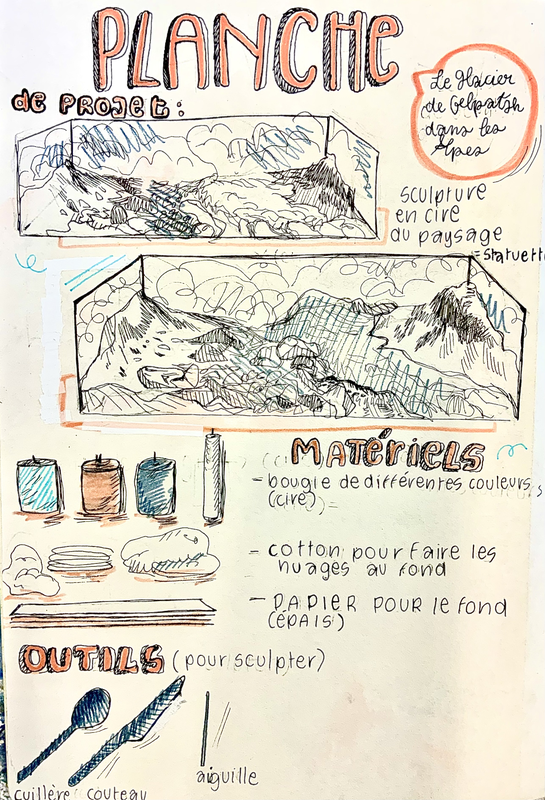 PLANCHE
de PROJET :
Le Glacier
de Gelpatsh
dans les
Alpes
sculpture
en cire
du paysage
= Statuett
MATÉRIELS
- bougie de différentes couleurs
(cire)
- cotton pour faire les
nuages au fond
- PAPIER POUR le fond
(ÉPAIS)
OUTILS (pour sculpter)
cuillère
couteau
aiguille